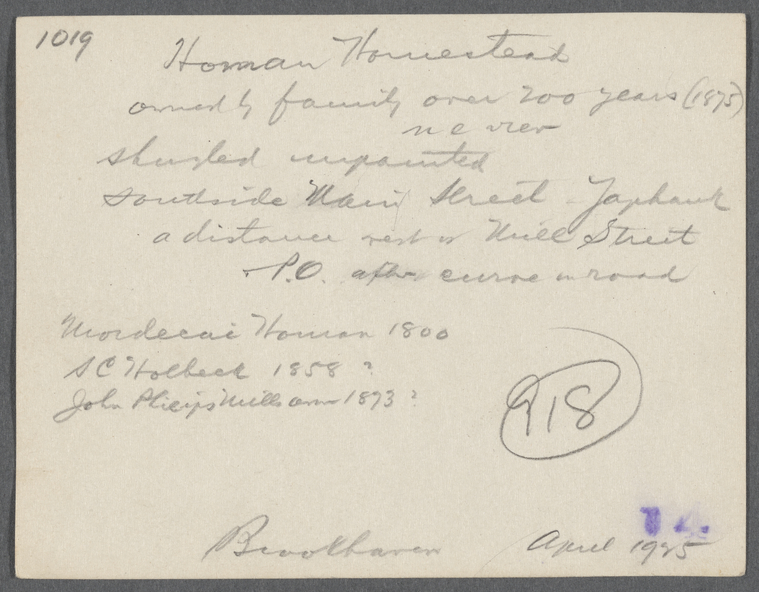 1019
Homan Homestead
owned by family over 200 years (1873)
never
shingled unpainted
southside Main Street - Yaphank
a distance west of Mill Street
P.O. after curve in road
Mordecai Homan 1800
S C Holbeck 1858 ?
John Phlips Mills own 1873 ?
918
Brookhaven April 1925